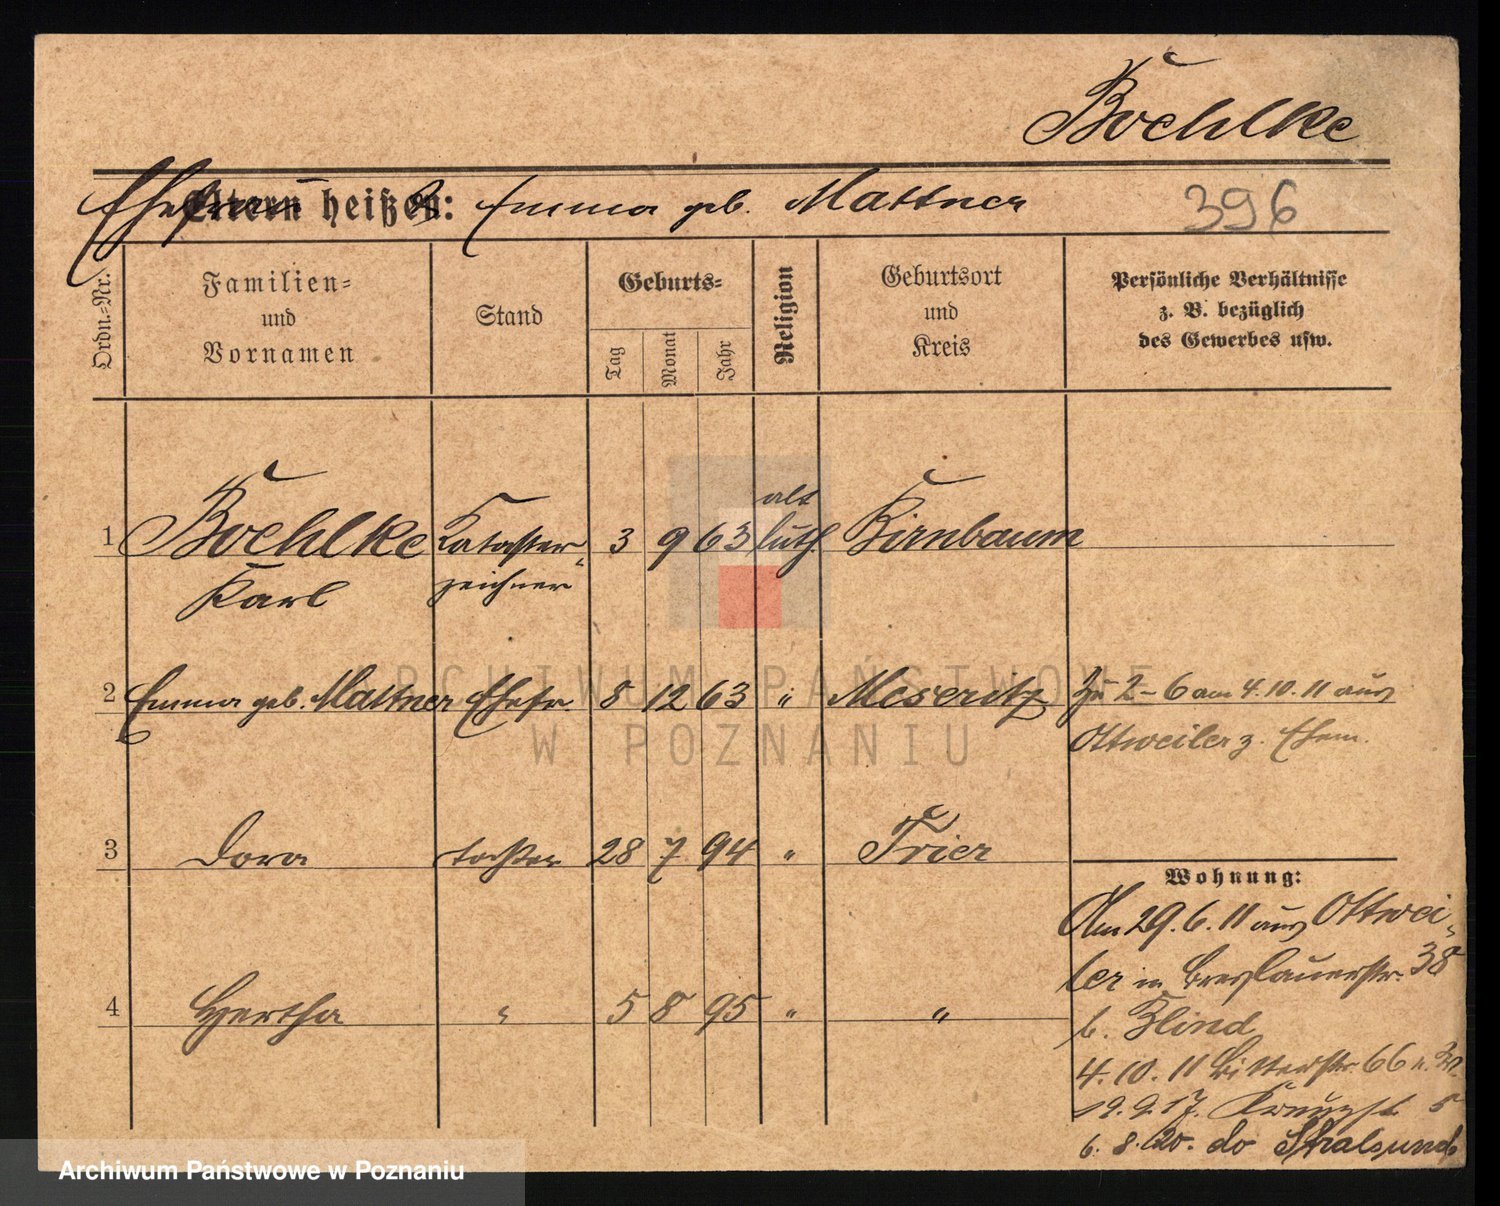 Boehlke
Ehefrau Eltern heißen: Emma geb. Mattner
396
Ordn.-Nr.
Familien- und Vornamen
Stand
Geburts-
Tag
Monat
Jahr
Religion
Geburtsort und Kreis
Persönliche Verhältnisse
z. B. bezüglich
des Gewerbes usw.
1 Boehlke Kataster- 3 9 63 alt luth. Birnbaum
Karl zeichner
2 Emma geb. Mattner Ehefr. 8 12 63 " Meseritz
Zu 2-6 am 4.10.11 aus
Ottweiler z. Ehem.
3 Dora Tochter 28 7 94 " Trier
4 Hertha " 5 8 95 " "
Wohnung:
Am 29.6.11 aus Ottwei-
ler in Breslauerstr. 38
b. Zlind
4.10.11 Ritterstr. 66
19.9.17. 5
6.8.20. do Stralsund
ARCHIWUM PAŃSTWOWE
W POZNANIU
Archiwum Państwowe w Poznaniu